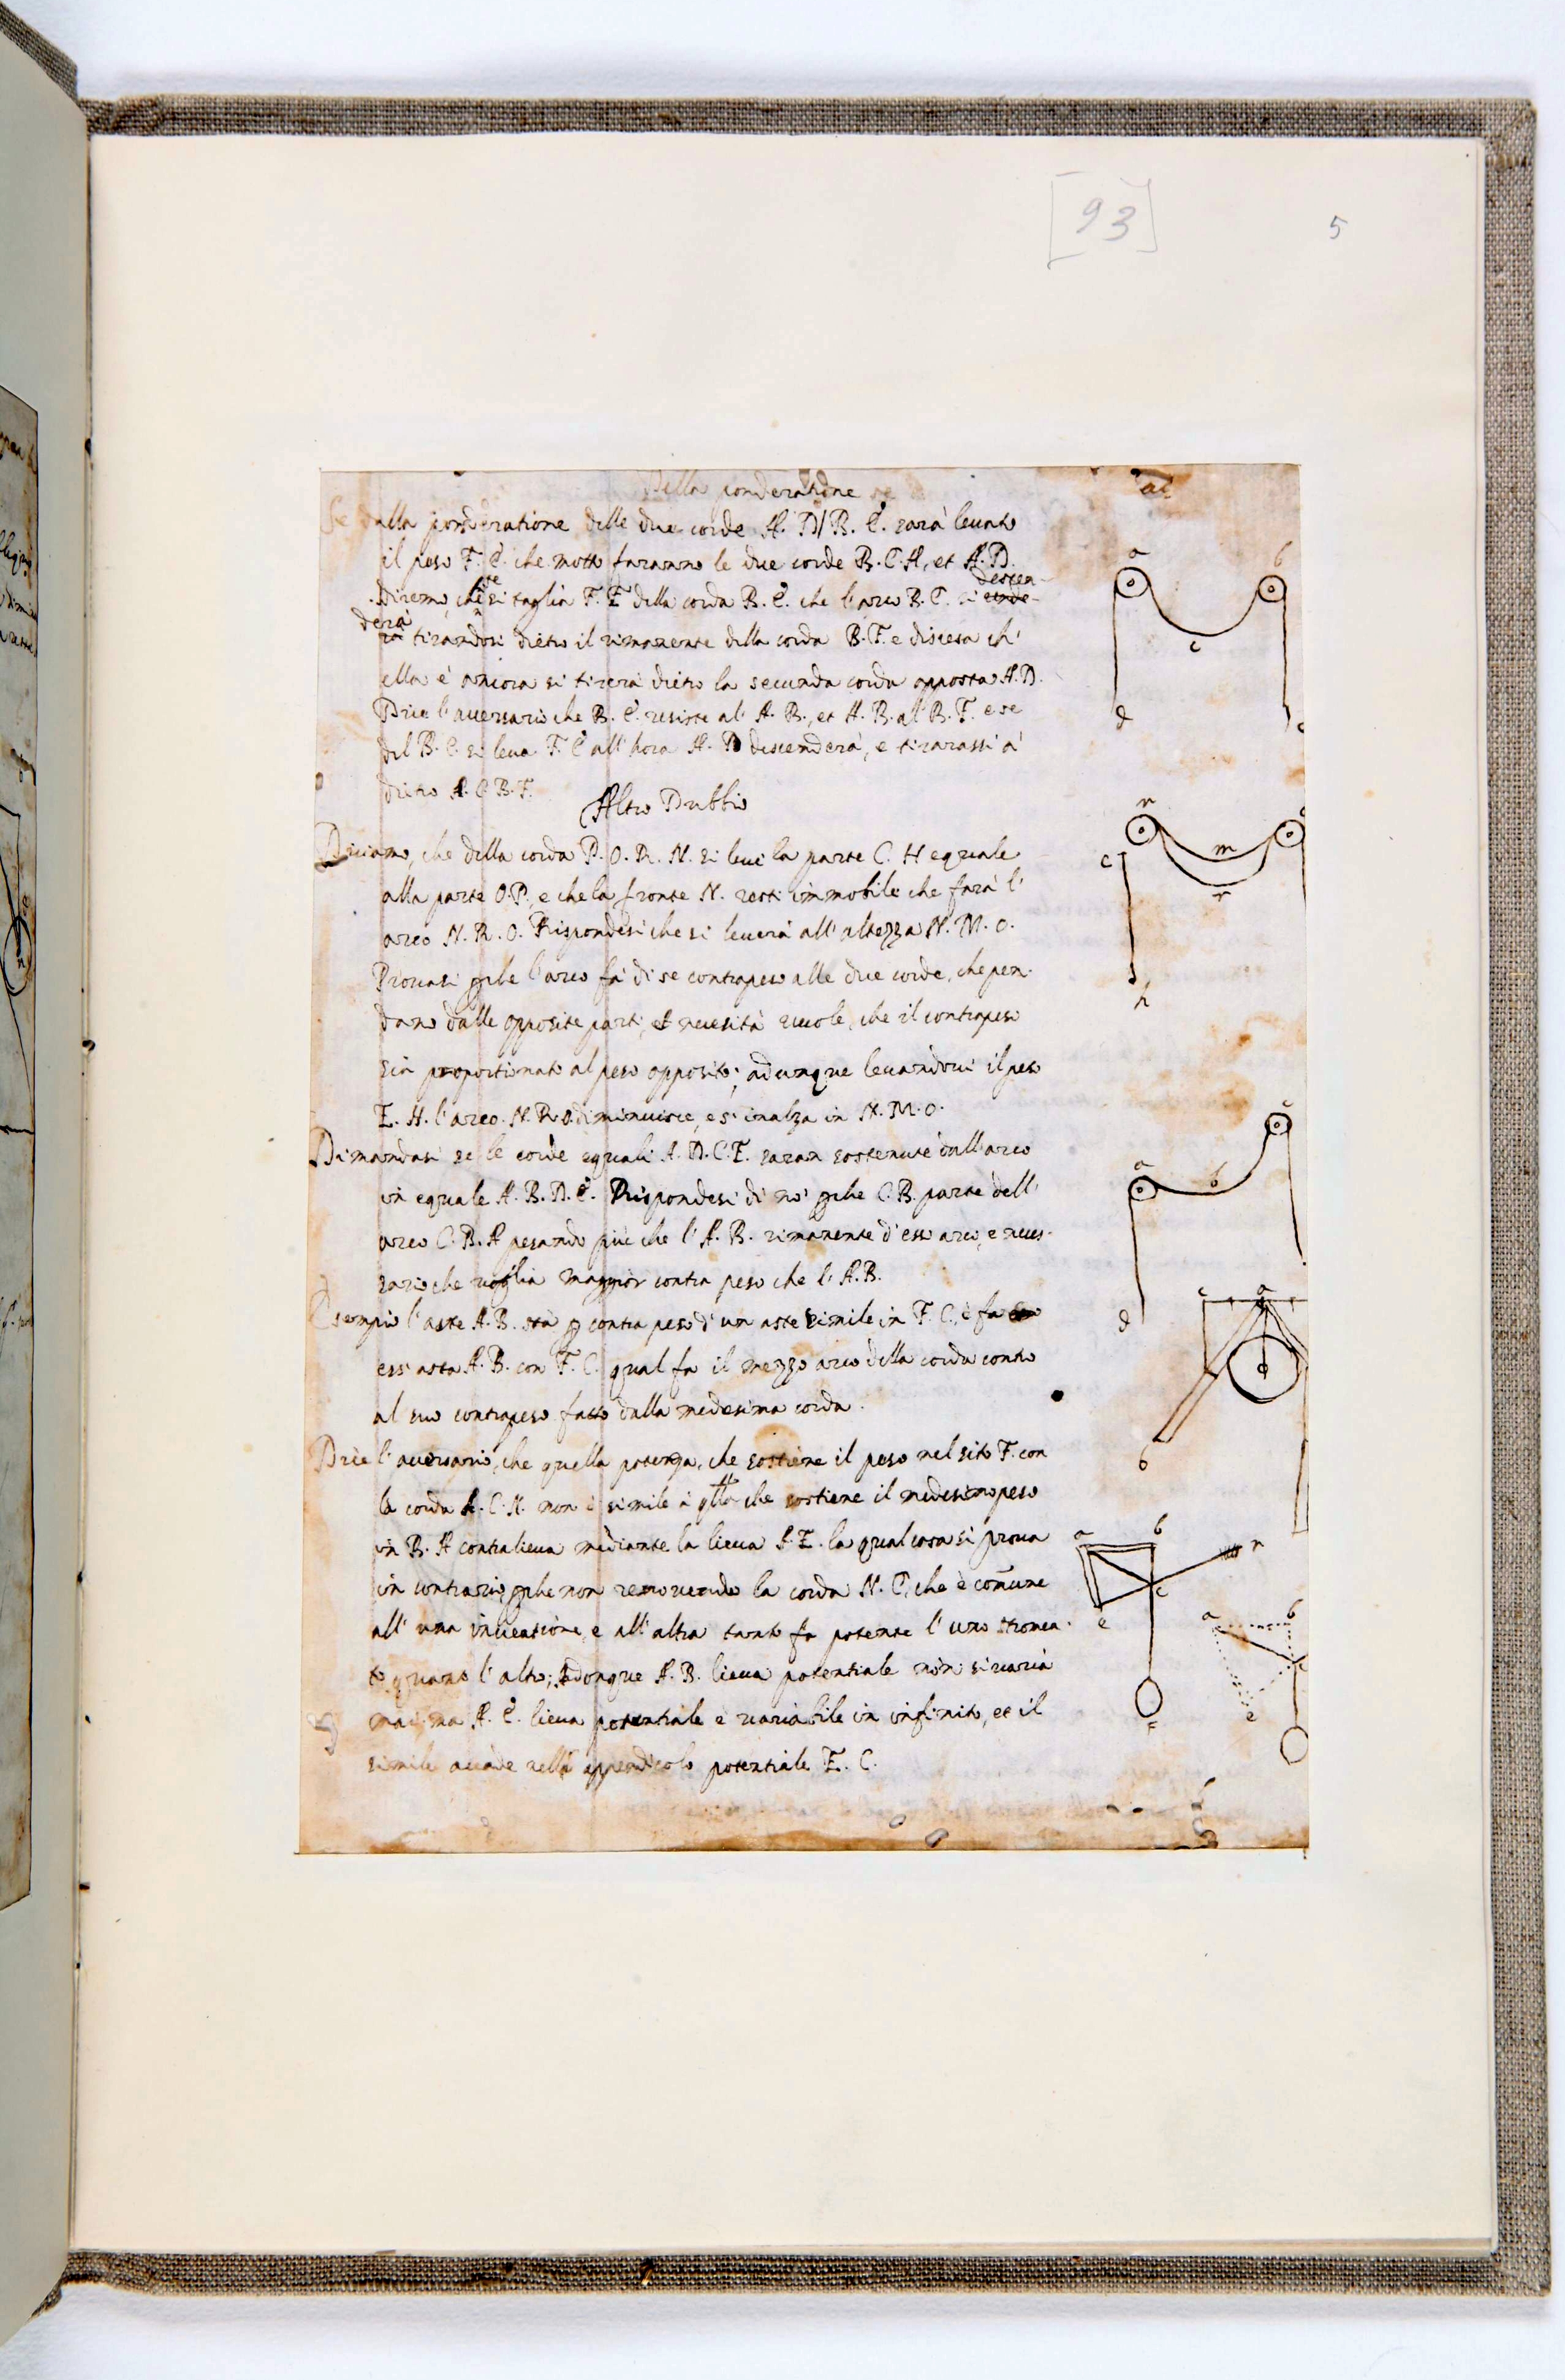 [93]
5
Della ponderatione
Se dalla ponderatione delle due corde A. D/B. E. sarà leuato
il peso F. E. che motto faranno le due corde B. C. A, et A. D.
descen-
Diremo che se si taglia F. E della corda B. E. che l'arco B. C. si
derà tirandosi dietro il rimanente della corda B. F. e discesa ch'
ella è ancora si tirerà dietro la seconda corda opposta A. D.
Dice l'auersario che B. E. resiste al' A. B., et A. B. al B. F. e se
del B. E. si leua F. E all'hora A. D descenderà, e tirarassi a'
dietro A. C B. F.
Altro Dubbio
Diciamo, che della corda P. O. R. N. si leui la parte C. H equale
alla parte O. P., e che la fronte N. resti immobile che farà l'
arco N. R. O. Rispondesi che si leuerà all'altezza N. M. O.
Prouasi pche l'arco fa di se contrapeso alle due corde, che pen-
dano dalle opposite parti, et necesità vuole, che il contrapeso
sia proportionato al peso opposito; adunque leuandoui il peso
E. H. l'arco. N. R. O. diminuisce, e s'inalza in N. M. O.
Dimandasi se le corde equali A. D. C. E. saran sostenute dall'arco
in equale A. B. D. E. Rispondesi di nò pche C. B. parte dell'
arco C. B. A pesando più che l'A. B. rimanente d'esso arco, e neces-
sario che voglia maggior contra peso che l'A. B.
Esempio l'aste A. B. sta p contra peso d'un aste simile in F. C., e fa
ess'asta A. B. con F. C. qual fa il mezzo arco della corda contro
al suo contrapeso fatto dalla medesima corda.
Dice l'auersario, che quella potenza, che sostiene il peso nel sito F. con
la corda A. C. N. non è simile à qlla che sostiene il medesimo peso
in B. A contralieua mediante la lieua A. E. la qual cosa si proua
in contrario, pche non remouendo la corda N. C, che è comune
all'una inuentione, e all'altra tanto fa potente l'uno stromen-
to quanto l'altro; adonque A. B. lieua potentiale non si uaria
mai, ma A. E. lieua potentiale è uariabile in infinito, et il
simile accade nella appendicolo potentiale E. C.
a
b
c
d
n
m
r
c
h
a
b
c
d
c
a
b
a
b
n
c
e
a
b
c
e